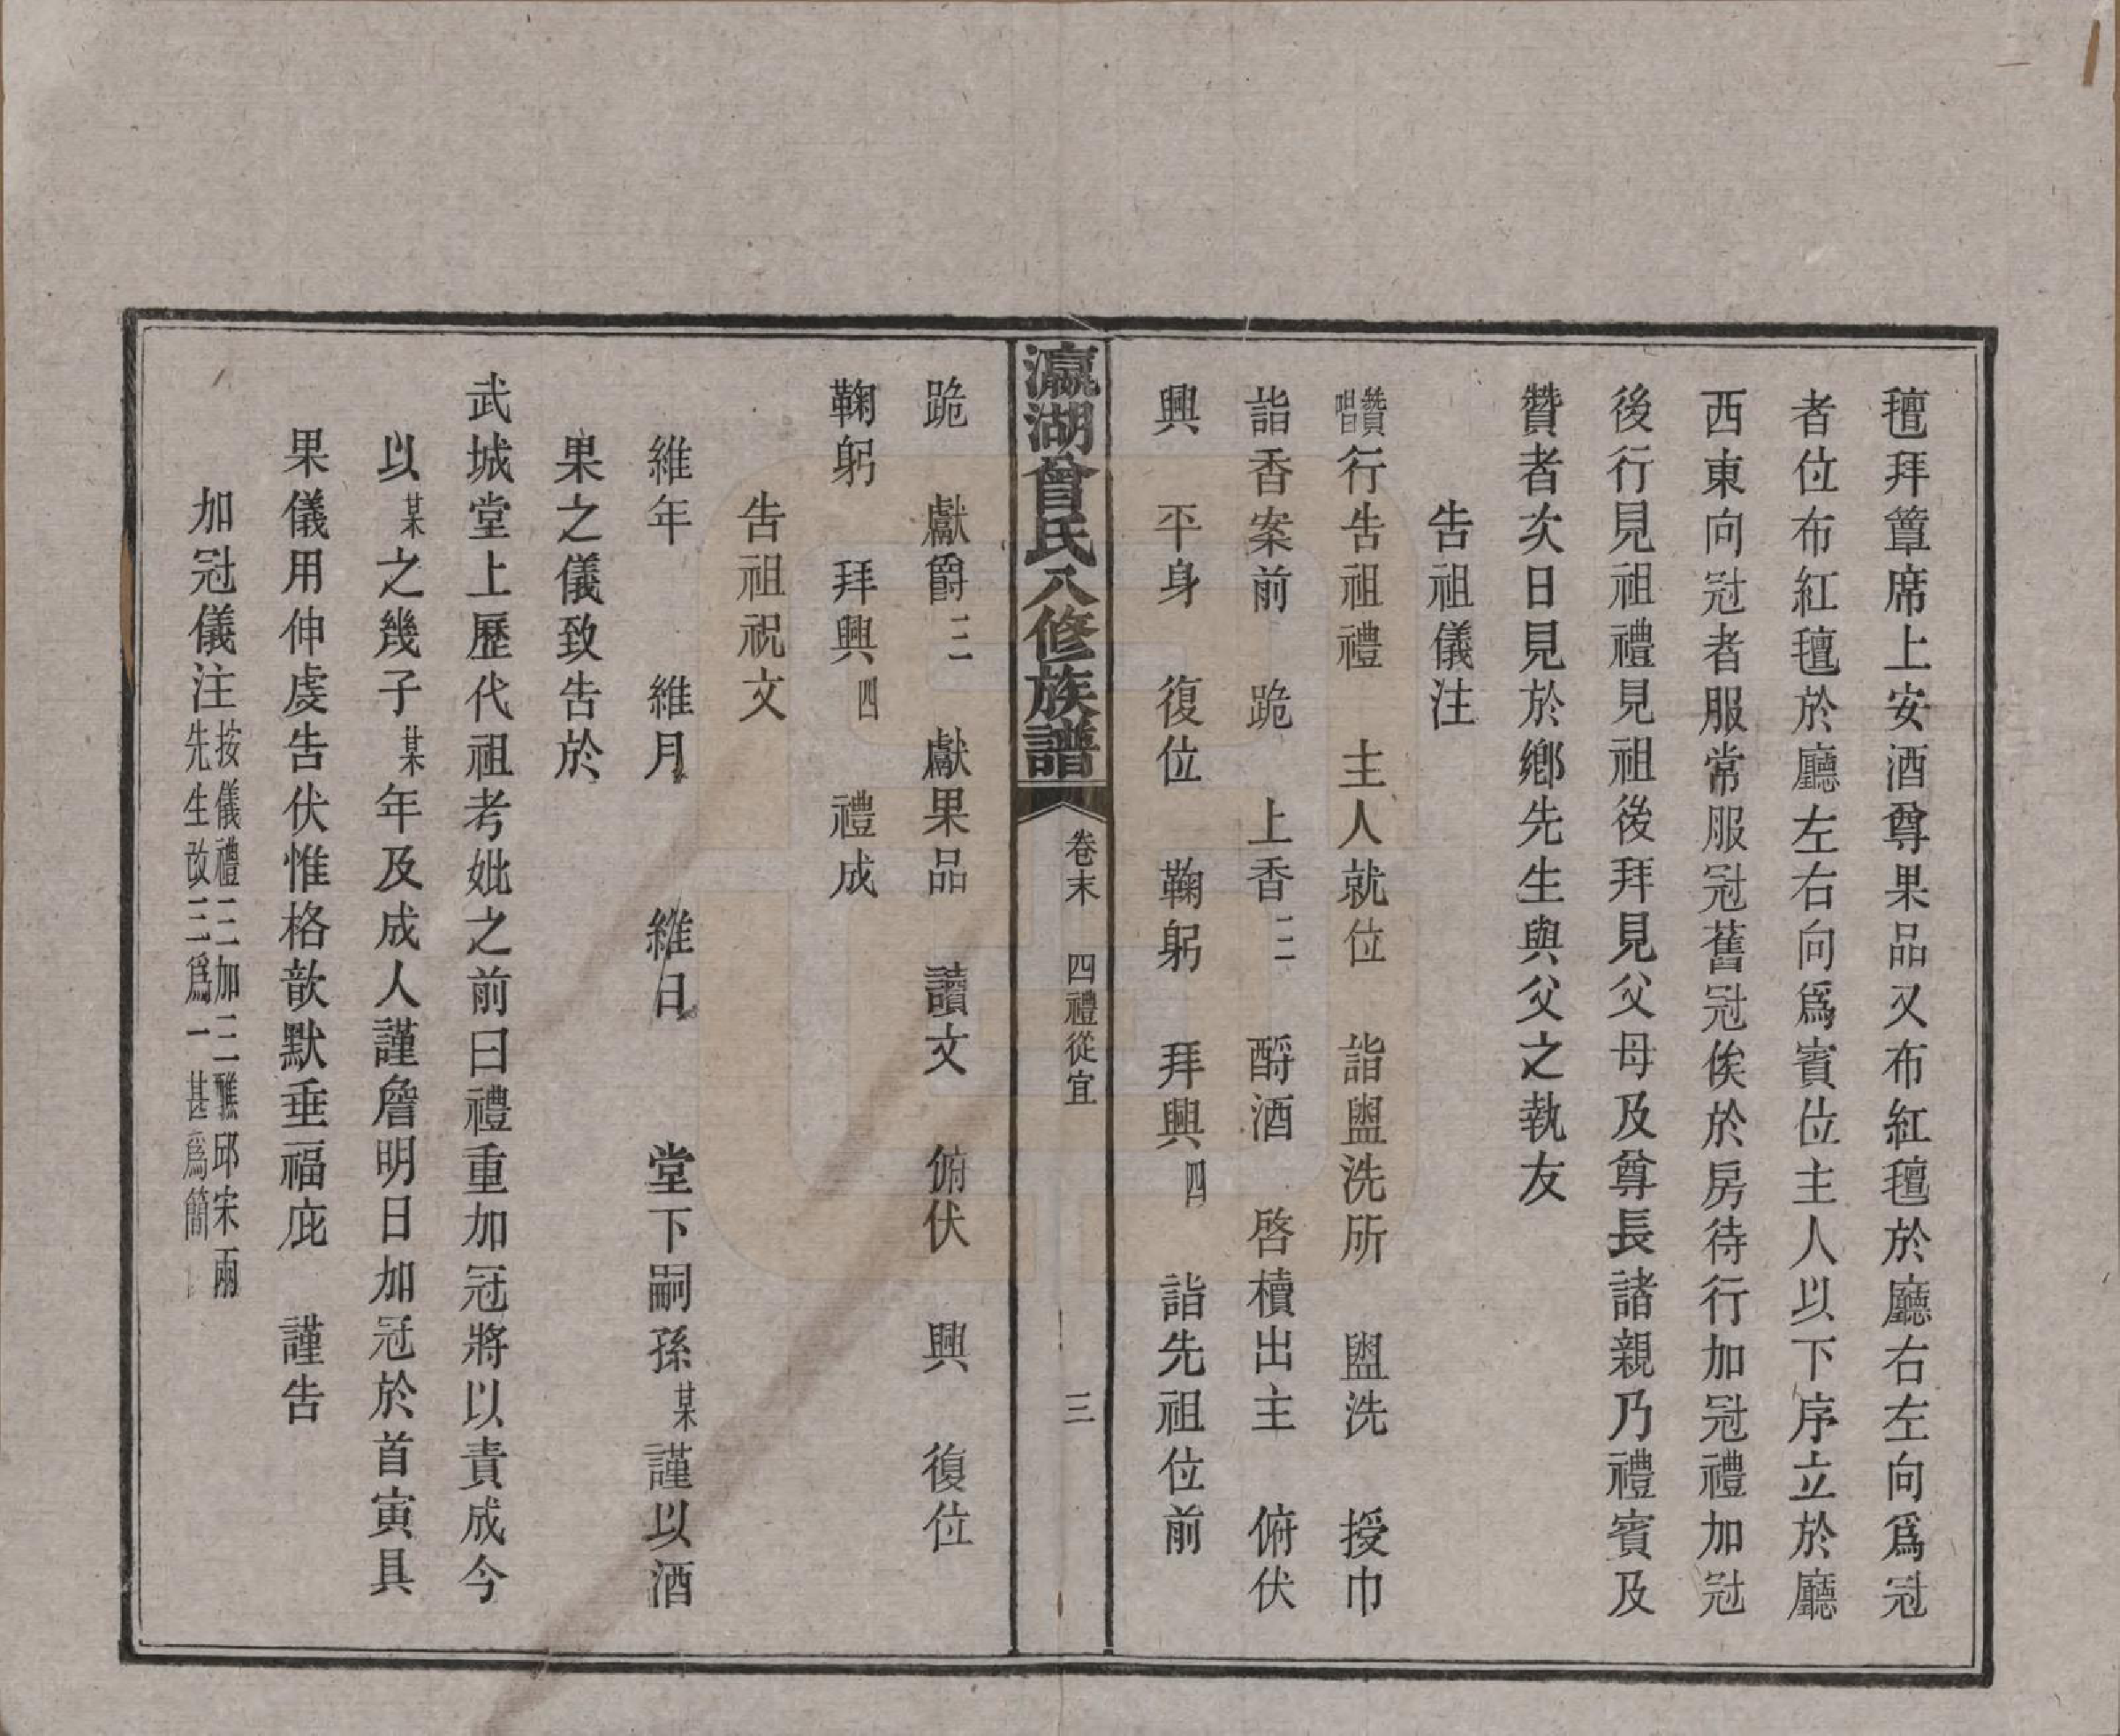 氊拜簟席上安酒尊果品又布紅氊於廳右左向爲冠
者位布紅氊於廳左右向爲賓位主人以下序立於廳
西東向冠者服常服冠舊冠俟於房待行加冠禮加冠
後行見祖禮見祖後拜見父母及尊長諸親乃禮賓及
贊者次日見於鄉先生與父之執友
告祖儀注
贊唱行告祖禮　主人就位　詣盥洗所　盥洗　授巾
詣香案前　跪　上香三　酹酒　啓櫝出主　俯伏
興　平身　復位　鞠躬　拜興四　詣先祖位前
瀛湖曾氏八修族譜　卷末　四禮從宜　三
跪　獻爵三　獻果品　讀文　俯伏　興　復位
鞠躬　拜興四　禮成
告祖祝文
維年　維月　維日　堂下嗣孫某謹以酒
果之儀致告於
武城堂上歷代祖考妣之前曰禮重加冠將以責成今
以某之幾子某年及成人謹詹明日加冠於首寅具
果儀用伸虔告伏惟格歆默垂福庇　謹告
加冠儀注按儀禮三加三醮邱宋兩
先生改三爲一甚爲簡